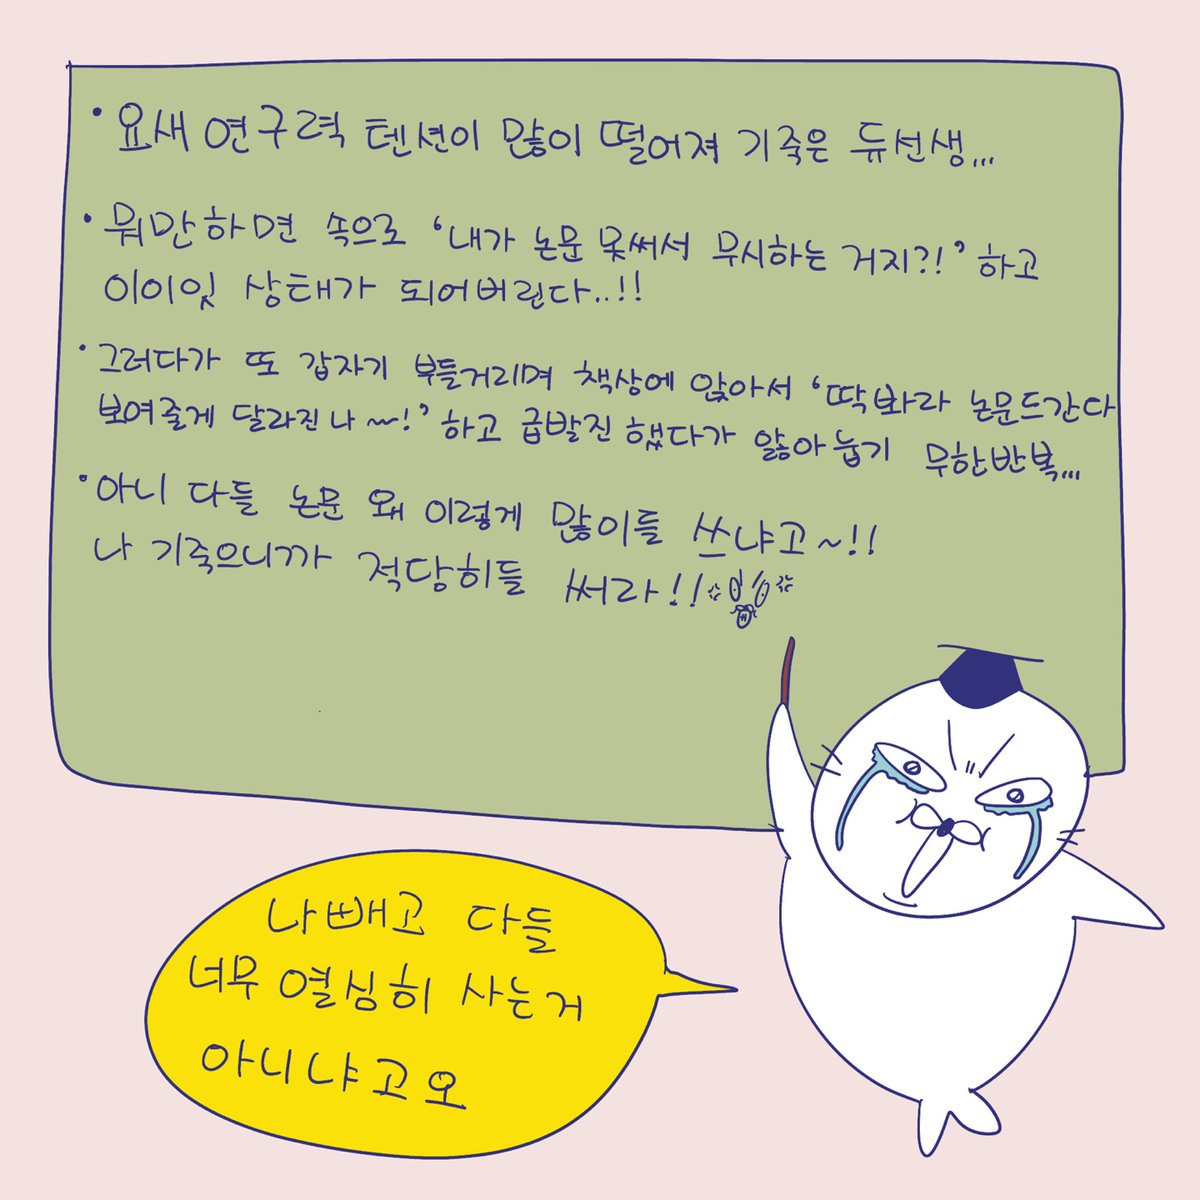 • 요새 연구력 텐션이 많이 떨어져 기죽은 듀선생...
• 뭐만하면 속으로 '내가 논문 못써서 무시하는 거지?!' 하고
이이잇 상태가 되어버린다..!!
• 그러다가 또 갑자기 부들거리며 책상에 앉아서 '딱봐라 논문드간다
보여줄게 달라진 나 ~!' 하고 급발진 했다가 앓아눕기 무한반복...
• 아니 다들 논문 왜 이렇게 많이들 쓰냐고~!!
나 기죽으니까 적당히들 써라!!
나빼고 다들
너무 열심히 사는거
아니냐고오